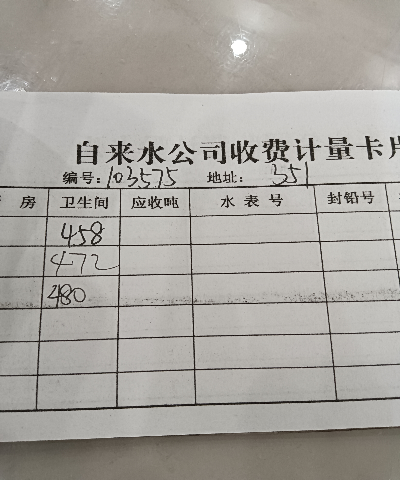 自来水公司收费计量卡片
编号:103575 地址: 351
房 卫生间 应收吨 水表号 封铅号
458
472
480